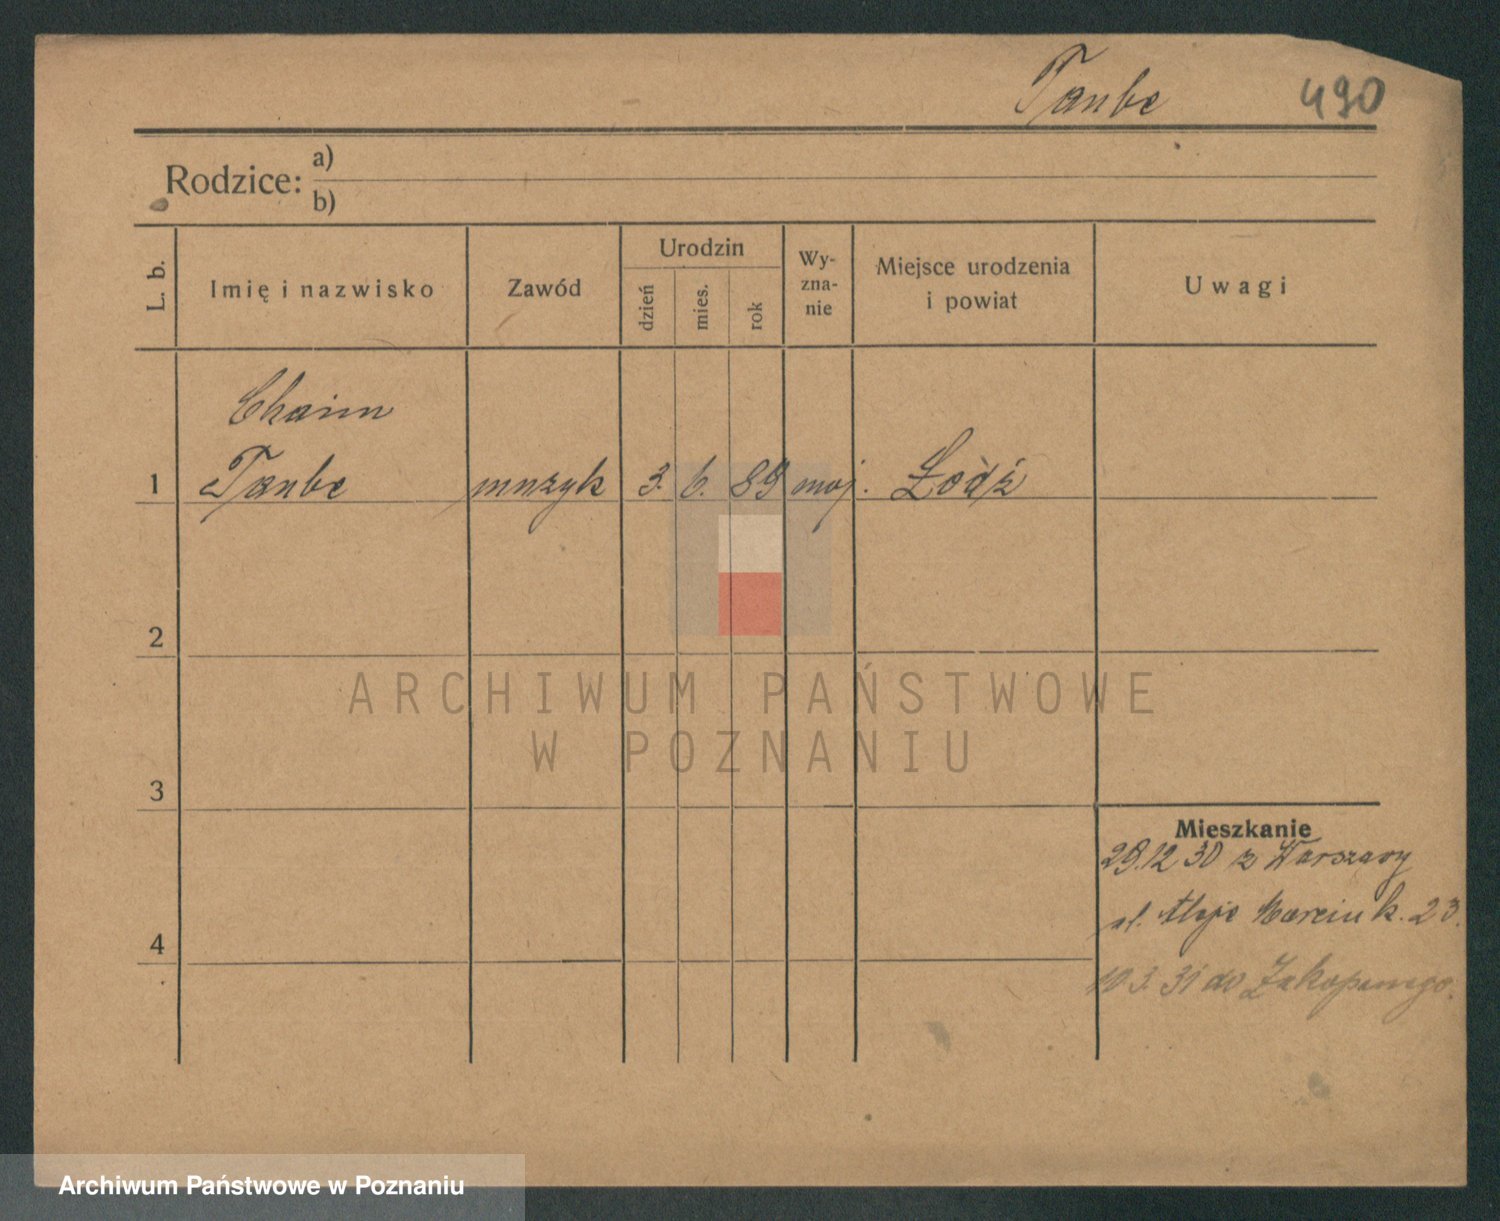 Taube 490
Rodzice: a)
b)
L. b. Imię i nazwisko Zawód Urodzin dzień mies. rok Wy-zna-nie Miejsce urodzenia i powiat Uwagi
Chaim
1 Taube muzyk 3. 6. 89 moj. Łódź
2
ARCHIWUM PAŃSTWOWE
W POZNANIU
3
Mieszkanie
29.12 30 z Warszawy
ul. Aleje Marcink. 23.
4
10 3. 31 do Zakopanego.
Archiwum Państwowe w Poznaniu